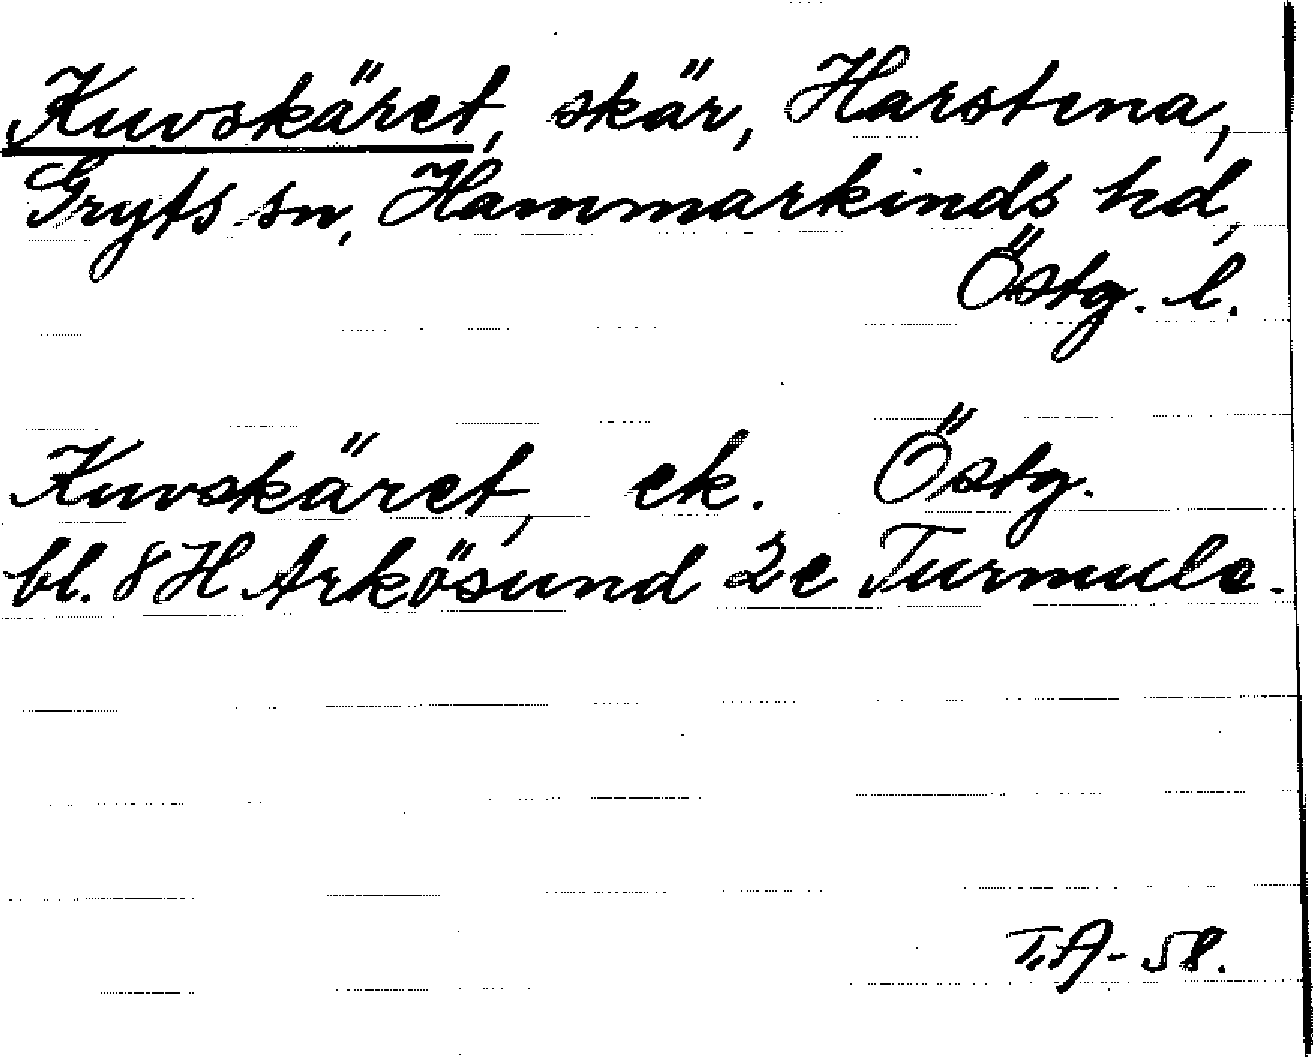 Kuvskäret, skär, Harstena,
Gryts sn, Hammarkinds hd,
Östg. l.
Kuvskäret, ek. Östg.
bl. 8H Arkösund 2e Turmule.
T.A-58.